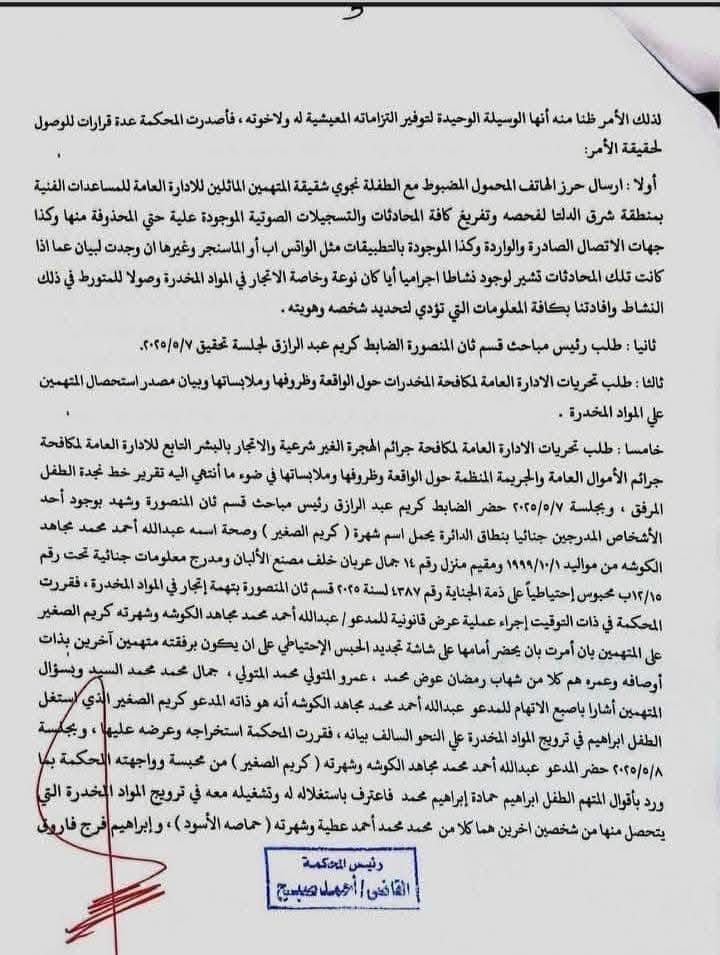 لذلك الأمر ظنا منه أنها الوسيلة الوحيدة لتوفير التزاماته المعيشية له ولاخوته ، فأصدرت المحكمة عدة قرارات للوصول
لحقيقة الأمر:
أولا : ارسال حرز الهاتف المحمول المضبوط مع الطفلة نجوي شقيقة المتهمين الماثلين للادارة العامة للمساعدات الفنية
بمنطقة شرق الدلتا لفحصه وتفريغ كافة المحادثات والتسجيلات الصوتية الموجودة علية حتي المحذوفة منها وكذا
جهات الاتصال الصادرة والواردة وكذا الموجودة بالتطبيقات مثل الواتس اب أو الماسنجر وغيرها ان وجدت لبيان عما اذا
كانت تلك المحادثات تشير لوجود نشاطا اجراميا أيا كان نوعة وخاصة الاتجار في المواد المخدرة وصولا للمتورط في ذلك
النشاط وافادتنا بكافة المعلومات التي تؤدي لتحديد شخصه وهويته .
ثانيا : طلب رئيس مباحث قسم ثان المنصورة الضابط كريم عبد الرازق لجلسة تحقيق ٢٠٢٥/٥/٧.
ثالثا : طلب تحريات الادارة العامة لمكافحة المخدرات حول الواقعة وظروفها وملابساتها وبيان مصدر استحصال المتهمين
علي المواد المخدرة .
خامسا : طلب تحريات الادارة العامة لمكافحة جرائم الهجرة الغير شرعية والاتجار بالبشر التابع للادارة العامة لمكافحة
جرائم الأموال العامة والجريمة المنظمة حول الواقعة وظروفها وملابساتها في ضوء ما أنتهي اليه تقرير خط نجدة الطفل
المرفق ، وبجلسة ٢٠٢٥/٥/٧ حضر الضابط كريم عبد الرازق رئيس مباحث قسم ثان المنصورة وشهد بوجود أحد
الأشخاص المدرجين جنائيا بنطاق الدائرة يحمل اسم شهرة ( كريم الصغير ) وصحة اسمه عبدالله أحمد محمد مجاهد
الكوشه من مواليد ١٩٩٩/١٠/١ ومقيم منزل رقم ١٤ جمال عريان خلف مصنع الألبان ومدرج معلومات جنائية تحت رقم
١٢/١٥ب محبوس إحتياطياً علي ذمة الجناية رقم ٤٣٨٧ لسنة ٢٠٢٥ قسم ثان المنصورة بتهمة إتجار في المواد المخدرة ، فقررت
المحكمة في ذات التوقيت إجراء عملية عرض قانونية للمدعو / عبدالله أحمد محمد مجاهد الكوشه وشهرته كريم الصغير
علي المتهمين بان أمرت بان يحضر أمامها علي شاشة تجديد الحبس الإحتياطي علي ان يكون برفقته متهمين آخرين بذات
أوصافه وعمره هم كلا من شهاب رمضان عوض محمد ، عمرو المتولي محمد المتولي ، جمال محمد محمد السيد وبسؤال
المتهمين أشارا باصبع الاتهام للمدعو عبدالله أحمد محمد مجاهد الكوشه أنه هو ذاته المدعو كريم الصغير الذي استغل
الطفل ابراهيم في ترويج المواد المخدرة علي النحو السالف بيانه ، فقررت المحكمة استخراجه وعرضه عليها ، وبجلسة
٢٠٢٥/٥/٨ حضر المدعو عبدالله أحمد محمد مجاهد الكوشه وشهرته ( كريم الصغير ) من محبسة وواجهته المحكمة بما
ورد بأقوال المتهم الطفل ابراهيم حمادة إبراهيم محمد فاعترف باستغلاله له وتشغيله معه في ترويج المواد المخدرة التي
يتحصل منها من شخصين اخرين هما كلا من محمد محمد أحمد عطية وشهرته ( حماصه الأسود ) ، و إبراهيم فرج فاروق
رئيس المحكمة
القاضي / أحمد صبيح